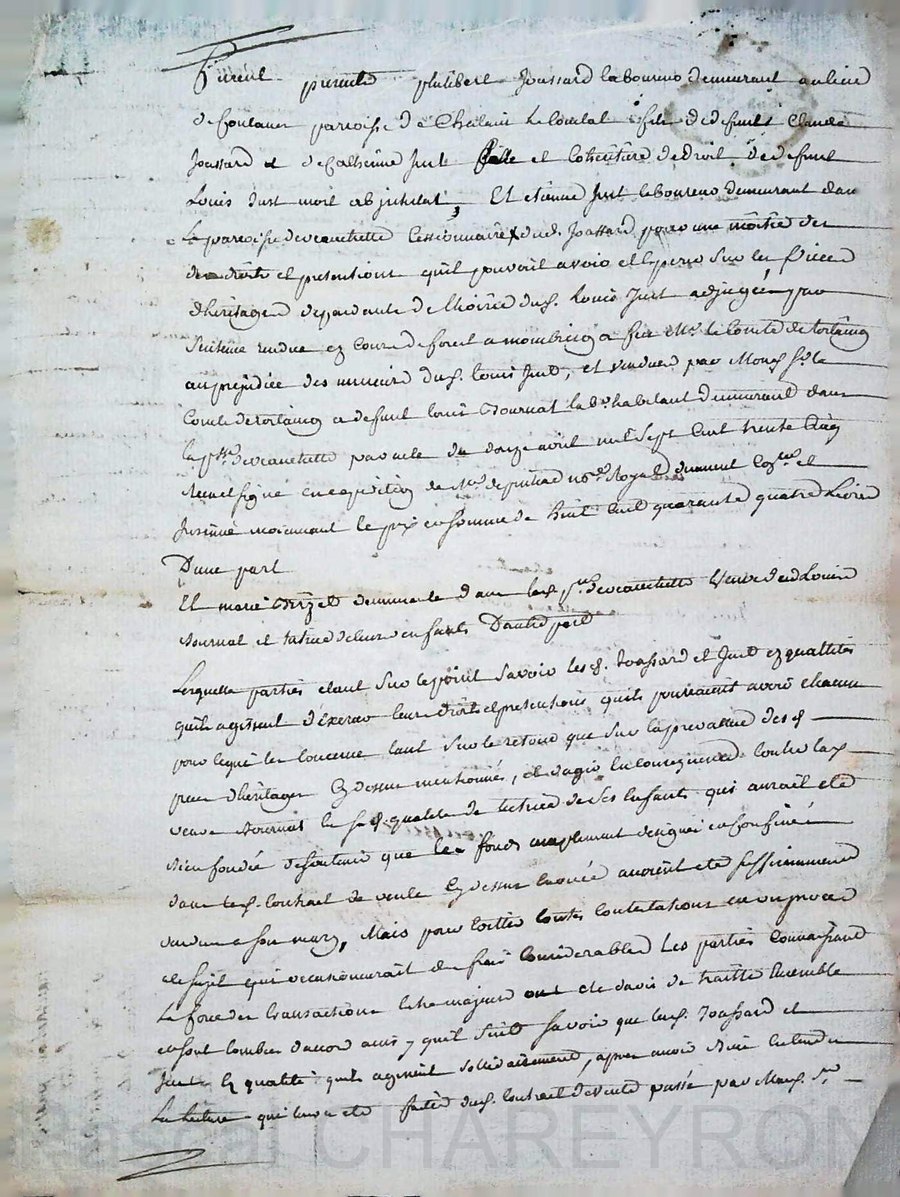 Furent presents philibert Joassard laboureur demeurant au lieu
de fontanes paroisse de Chalain Le Comtal fils de defunt Claude
Joassard et de Catherine Just fille et cohéritière de droit de defunt
Louis Just mort ab intestat, Et etienne Just laboureur demeurant dans
La paroisse de veauchette Cessionnaire dud. Joassard pour une moitié des
droits et pretentions qu'il pouvoit avoir et esperer sur les pieces
d'héritages dependante de l'hoirie dud. Louis Just adjugée par
sentence rendue en Cour de forest a montbrison a feu Mr. le Comte de
au prejudice des mineurs dud. Louis Just, et vendues par Mond. Sr. le
Comte de a defunt Louis Journat lab. habitant demeurant dans
la psse. de veauchette par acte du douze avril mil Sept Cent trente Cinq
Receu et signé en expedition de Me. no.re Royal
moienant le prix et somme de huit Cent quarante quatre Livres
D'une part
Et marie demeurante dans lad. psse. de veauchette Veuve dud. Louis
Journat et tutrice de leurs enfants D'autre part
Lesquelles parties etant sur le point Savoir les d. Joassard et Just ez qualités
qu'ils agissent d'exercer leurs droits et pretentions qu'ils pouvaient avoir chacun
pour ce qui les concerne tant sur le retour que sur la prevalue des d.
pieces d'héritages Cy dessus mentionnés, et d'agir en consequence Contre lad.
veuve Journat en sad. qualité de tutrice de ses Enfants qui aurait eté
bien fondée de soutenir que les fonds amplement designés et confinés
dans led. Contrat de vente Cy dessus énoncé avoient eté suffisamment
vendus a son mary, Mais pour eviter toutes Contestations et un procès
a ce sujet qui occasionnerait des frais Considerables Les parties Connaissant
La force des transactions entre majeurs ont eté d'avis de traitter Ensemble
et sont tombés d'accord ainsi qu'il suit Savoir que lesd. Joassard et
Just ez qualité qu'ils agissent solidairement, apres avoir Entendu
La lecture qui leur a eté faite dud. Contrat de vente passé par Mond. Sr.
Pascal CHAREYRON